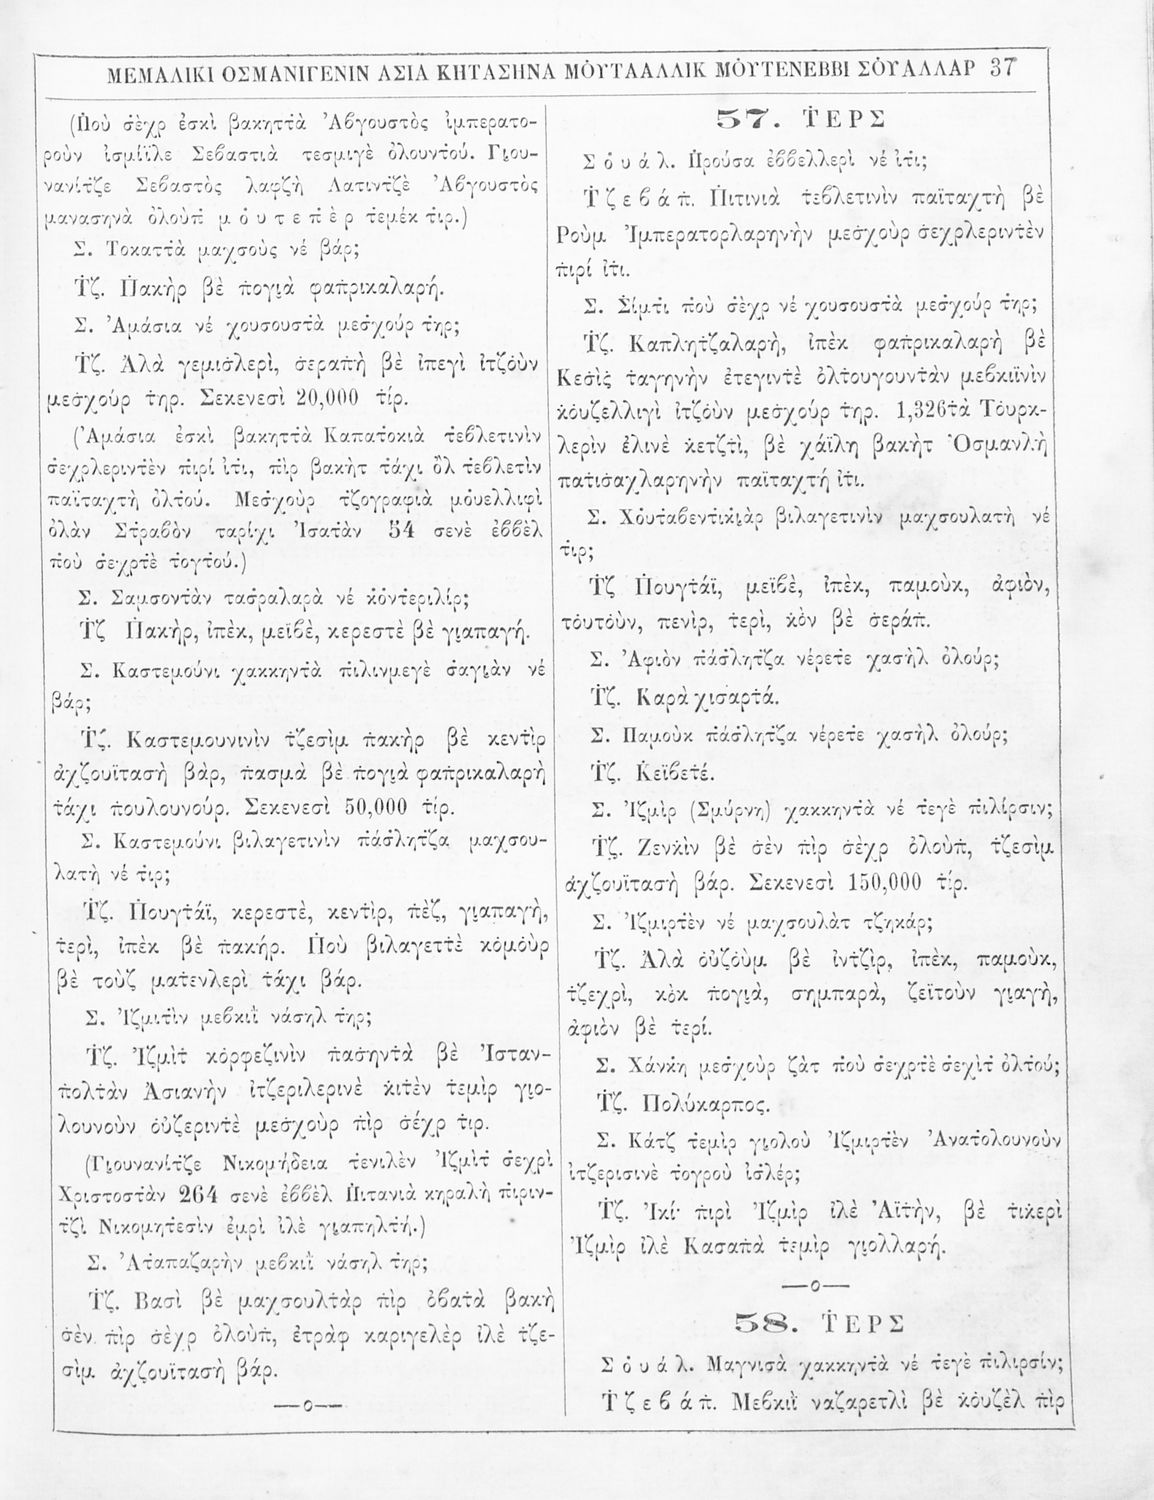 ΜΕΜΑΛΙΚΙ ΟΣΜΑΝΙΓΕΝΙΝ ΑΣΙΑ ΚΗΤΑΣΗΝΑ ΜΟΥΤΑΑΛΛΙΚ ΜΟΥΤΕΝΕΒΒΙ ΣΟΥΑΛΛΑΡ 37
(Ποὺ σ̇ὲχρ ἐσκὶ βακηττὰ Ἀβγουστὸς ἰμπερατο-
ροὺν ἰσμίϊλε Σεβαστιὰ τεσμιγὲ ὀλουντού. Γιου-
νανίτζε Σεβαστὸς λαφζὴ Λατιντζὲ Ἀβγουστὸς
μανασηνὰ ὀλοὺπ̇ μόυτεπ̇ὲρ τ̇εμέκ τ̇ιρ.)
Σ. Τοκαττὰ μαχσοὺς νέ βάρ;
Τ̇ζ. Π̇ακὴρ βὲ π̇ογιὰ φαπ̇ρικαλαρή.
Σ. Ἀμάσια νέ χουσουστὰ μεσ̇χούρ τ̇ηρ;
Τ̇ζ. Ἀλὰ γεμισ̇λερὶ, σ̇εραπ̇ὴ βὲ ἰπεγὶ ἰτζὁὺν
μεσ̇χούρ τηρ. Σεκενεσὶ 20,000 τ̇ίρ.
(Ἀμάσια ἐσκὶ βακηττὰ Καπατ̇οκιὰ τ̇εβλετινὶν
σ̇εχρλεριντ̇ὲν π̇ιρί ἰτ̇ι, π̇ὶρ βακὴτ τ̇άχι ὂλ τ̇εβλετὶν
παϊταχτὴ ὀλτ̇ού. Μεσ̇χοὺρ τζογραφιὰ μὁυελλιφὶ
ὀλὰν Στραβὸν ταρίχι Ἰσατ̇ὰν 54 σενὲ ἐββὲλ
π̇οὺ σ̇εχρτ̇ὲ τ̇ογτ̇ού.)
Σ. Σαμσοντ̇ὰν τασ̇ραλαρὰ νέ κ̇ὁντ̇εριλίρ;
Τ̇ζ Π̇ακὴρ, ἰπὲκ, μεϊβὲ, κερεστὲ βὲ γιαπαγή.
Σ. Καστεμούνι χακκηντ̇ὰ π̇ιλινμεγὲ σ̇αγιὰν νέ
βάρ;
Τ̇ζ. Καστεμουνινὶν τ̇ζεσὶμ π̇ακὴρ βὲ κεντ̇ὶρ
ἀχζουϊτασὴ βὰρ, π̇ασμὰ βὲ π̇ογιὰ φαπ̇ρικαλαρὴ
τ̇άχι π̇ουλουνούρ. Σεκενεσὶ 50,000 τ̇ίρ.
Σ. Καστεμούνι βιλαγετινὶν π̇άσ̇λητ̇ζα μαχσου-
λατὴ νέ τ̇ιρ;
Τ̇ζ. Π̇ουγτ̇άϊ, κερεστὲ, κεντ̇ὶρ, π̇ὲζ, γιαπαγὴ,
τ̇ερὶ, ἰπὲκ βὲ π̇ακήρ. Π̇οὺ βιλαγεττὲ κὁμὁὺρ
βὲ τοὺζ ματ̇ενλερὶ τ̇άχι βάρ.
Σ. Ἰζμιτ̇ὶν μεβκιῒ νάσηλ τ̇ηρ;
Τ̇ζ. Ἰζμὶτ̇ κὁρφεζινὶν π̇ασ̇ηντ̇ὰ βὲ Ἰσταν-
π̇ολτ̇ὰν Ἀσιανὴν ἰτζεριλερινὲ κ̇ιτ̇ὲν τ̇εμὶρ γιο-
λουνοὺν ὁὺζεριντ̇ὲ μεσ̇χοὺρ π̇ὶρ σ̇έχρ τ̇ιρ.
(Γιουνανίτζε Νικομήδεια τ̇ενιλὲν Ἰζμὶτ̇ σ̇εχρὶ
Χριστοστ̇ὰν 264 σενὲ ἐββὲλ Π̇ιτανιὰ κηραλὴ π̇ιριν-
τ̇ζὶ Νικομητ̇εσὶν ἐμρὶ ἰλὲ γιαπηλτ̇ή.)
Σ. Ἀτ̇απαζαρὴν μεβκιῒ νάσηλ τ̇ηρ;
Τ̇ζ. Βασὶ βὲ μαχσουλτ̇ὰρ π̇ὶρ ὀβατ̇ὰ βακὴ
σ̇ὲν π̇ὶρ σ̇ὲχρ ὀλοὺπ̇, ἐτρὰφ καριγελὲρ ἰλὲ τ̇ζε-
σὶμ ἀχζουϊτασὴ βάρ.
57. Τ̇ΕΡΣ
Σόυάλ. Π̇ρούσα ἐββελλερὶ νέ ἰτ̇ι;
Τ̇ζεβάπ̇. Π̇ιτινιὰ τ̇εβλετινὶν παϊταχτὴ βὲ
Ροὺμ Ἰμπερατορλαρηνὴν μεσ̇χοὺρ σ̇εχρλεριντ̇ὲν
π̇ιρί ἰτ̇ι.
Σ. Σ̇ίμτ̇ι π̇οὺ σ̇ὲχρ νέ χουσουστὰ μεσ̇χούρ τ̇ηρ;
Τ̇ζ. Καπλητ̇ζαλαρὴ, ἰπὲκ φαπ̇ρικαλαρὴ βὲ
Κεσ̇ὶς̇ τ̇αγηνὴν ἐτεγιντ̇ὲ ὀλτ̇ουγουντ̇ὰν μεβκιϊνὶν
κ̇ὁυζελλιγὶ ἰτζὁὺν μεσ̇χούρ τηρ. 1,326τ̇ὰ Τὁυρκ-
λερὶν ἐλινὲ κ̇ετζτ̇ὶ, βὲ χάϊλη βακὴτ Ὀσμανλὴ
πατισ̇αχλαρηνὴν παϊταχτή ἰτ̇ι.
Σ. Χὁυτ̇αβεντ̇ικ̇ιὰρ βιλαγετινὶν μαχσουλατὴ νέ
τ̇ιρ;
Τ̇ζ Π̇ουγτ̇άϊ, μεϊβὲ, ἰπὲκ, παμοὺκ, ἀφιὸν,
τὁυτὁὺν, πενὶρ, τ̇ερὶ, κ̇ὸν βὲ σ̇εράπ̇.
Σ. Ἀφιὸν π̇άσ̇λητ̇ζα νέρετ̇ε χασὴλ ὀλούρ;
Τ̇ζ. Καρὰ χισαρτ̇ά.
Σ. Παμοὺκ π̇άσ̇λητ̇ζα νέρετ̇ε χασὴλ ὀλούρ;
Τ̇ζ. Κ̇εϊβετ̇έ.
Σ. Ἰζμὶρ (Σμύρνη) χακκηντ̇ὰ νέ τ̇εγὲ π̇ιλίρσιν;
Τ̇ζ. Ζενκ̇ὶν βὲ σ̇ὲν π̇ὶρ σ̇ὲχρ ὀλοὺπ̇, τ̇ζεσὶμ
ἀχζουϊτασὴ βάρ. Σεκενεσὶ 150,000 τ̇ίρ.
Σ. Ἰζμιρτ̇ὲν νέ μαχσουλὰτ τζηκάρ;
Τ̇ζ. Ἀλὰ ὁὺζὁὺμ βὲ ἰντζὶρ, ἰπὲκ, παμοὺκ,
τ̇ζεχρὶ, κὸκ π̇ογιὰ, σημπαρὰ, ζεϊτοὺν γιαγὴ,
ἀφιὸν βὲ τ̇ερί.
Σ. Χάνκ̇η μεσ̇χοὺρ ζὰτ π̇οὺ σ̇εχρτ̇ὲ σ̇εχὶτ̇ ὀλτ̇ού;
Τ̇ζ. Πολύκαρπος.
Σ. Κάτζ τ̇εμὶρ γιολοὺ Ἰζμιρτ̇ὲν Ἀνατ̇ολουνοὺν
ἰτζερισινὲ τ̇ογροὺ ἰσ̇λέρ;
Τ̇ζ. Ἰκί· π̇ιρὶ Ἰζμὶρ ἰλὲ Ἀϊτ̇ὴν, βὲ τ̇ικερὶ
Ἰζμὶρ ἰλὲ Κασαπ̇ὰ τ̇εμὶρ γιολλαρή.
58. Τ̇ΕΡΣ
Σόυάλ. Μαγνισὰ χακκηντ̇ὰ νέ τ̇εγὲ π̇ιλιρσίν;
Τ̇ζεβάπ̇. Μεβκιῒ ναζαρετλὶ βὲ κ̇ὁυζὲλ π̇ὶρ